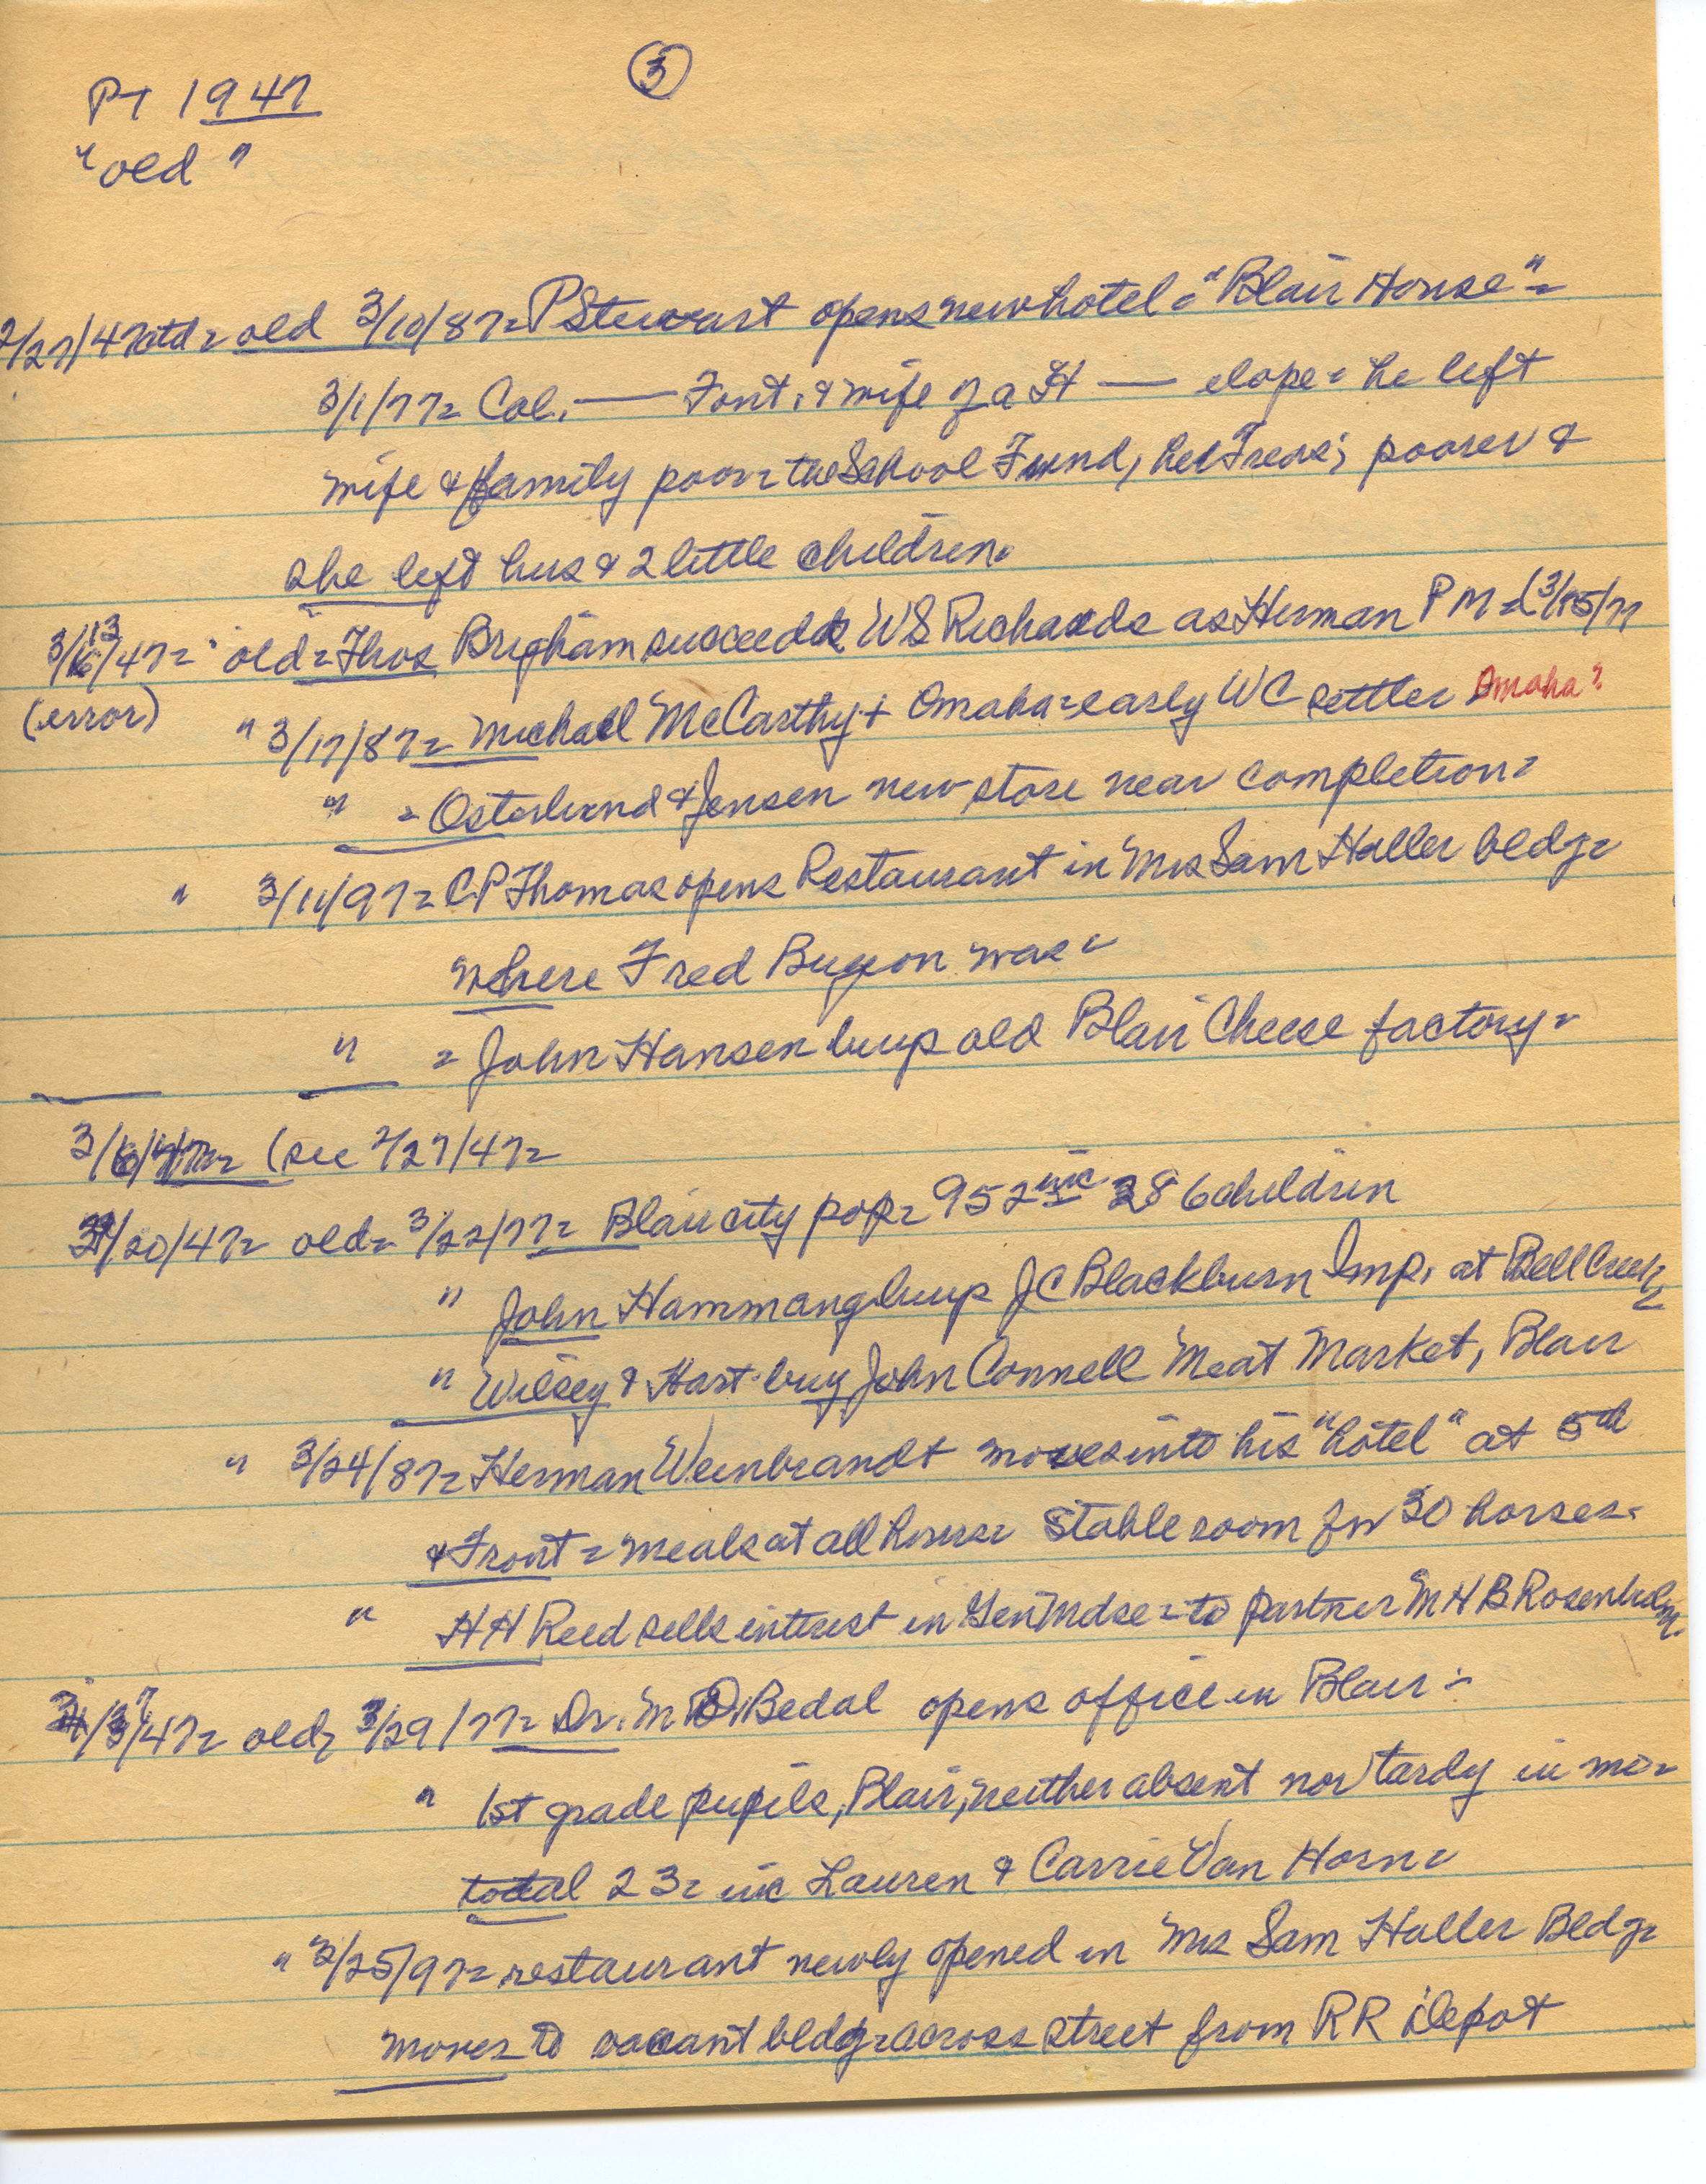 ③
PT 1947
"old"
2/27/47 ctd = old 3/10/87 = P Stewart opens new hotel = "Blair House" =
3/1/77 = Col. — Font. & wife of a H — elope = he left
wife & family poor = the School Fund, her Treas; poorer &
she left hus & 2 little children.
3/13/47 = " old = Thos Brigham succeeds W S Richards as Herman P M = (3/15/77
(error) " 3/17/87 = Michael McCarthy + Omaha = early WC settler Omaha?
" = Osterlund & Jensen new store near completion =
" 3/11/97 = C P Thomas opens Restaurant in Mrs Sam Haller bldg =
where Fred was =
" = John Hansen buys old Blair Cheese factory =
3/6/47 = (see 2/27/47 =
3/20/47 = old = 3/22/77 = Blair city pop = 952 inc 286 children
" John Hammang buys J C Blackburn Imp. at Bell Creek =
" Wilsey & Hart buy John Connell Meat Market, Blair
" 3/24/87 = Herman Weinbrandt moves into his "hotel" at 5th
& Front = meals at all hours = stable room for 30 horses =
" H H Reed sells interest in Gen Mdse = to partner M H B Rosenbalm.
47 = old = 3/29/77 = Dr. M D. Bedal opens office in Blair =
" 1st grade pupils, Blair, neither absent nor tardy in mo =
total 23 = inc Lauren & Carrie Van Horn =
" 3/25/97 = restaurant newly opened in Mrs Sam Haller Bldg =
moves to vacant bldg = across street from RR Depot